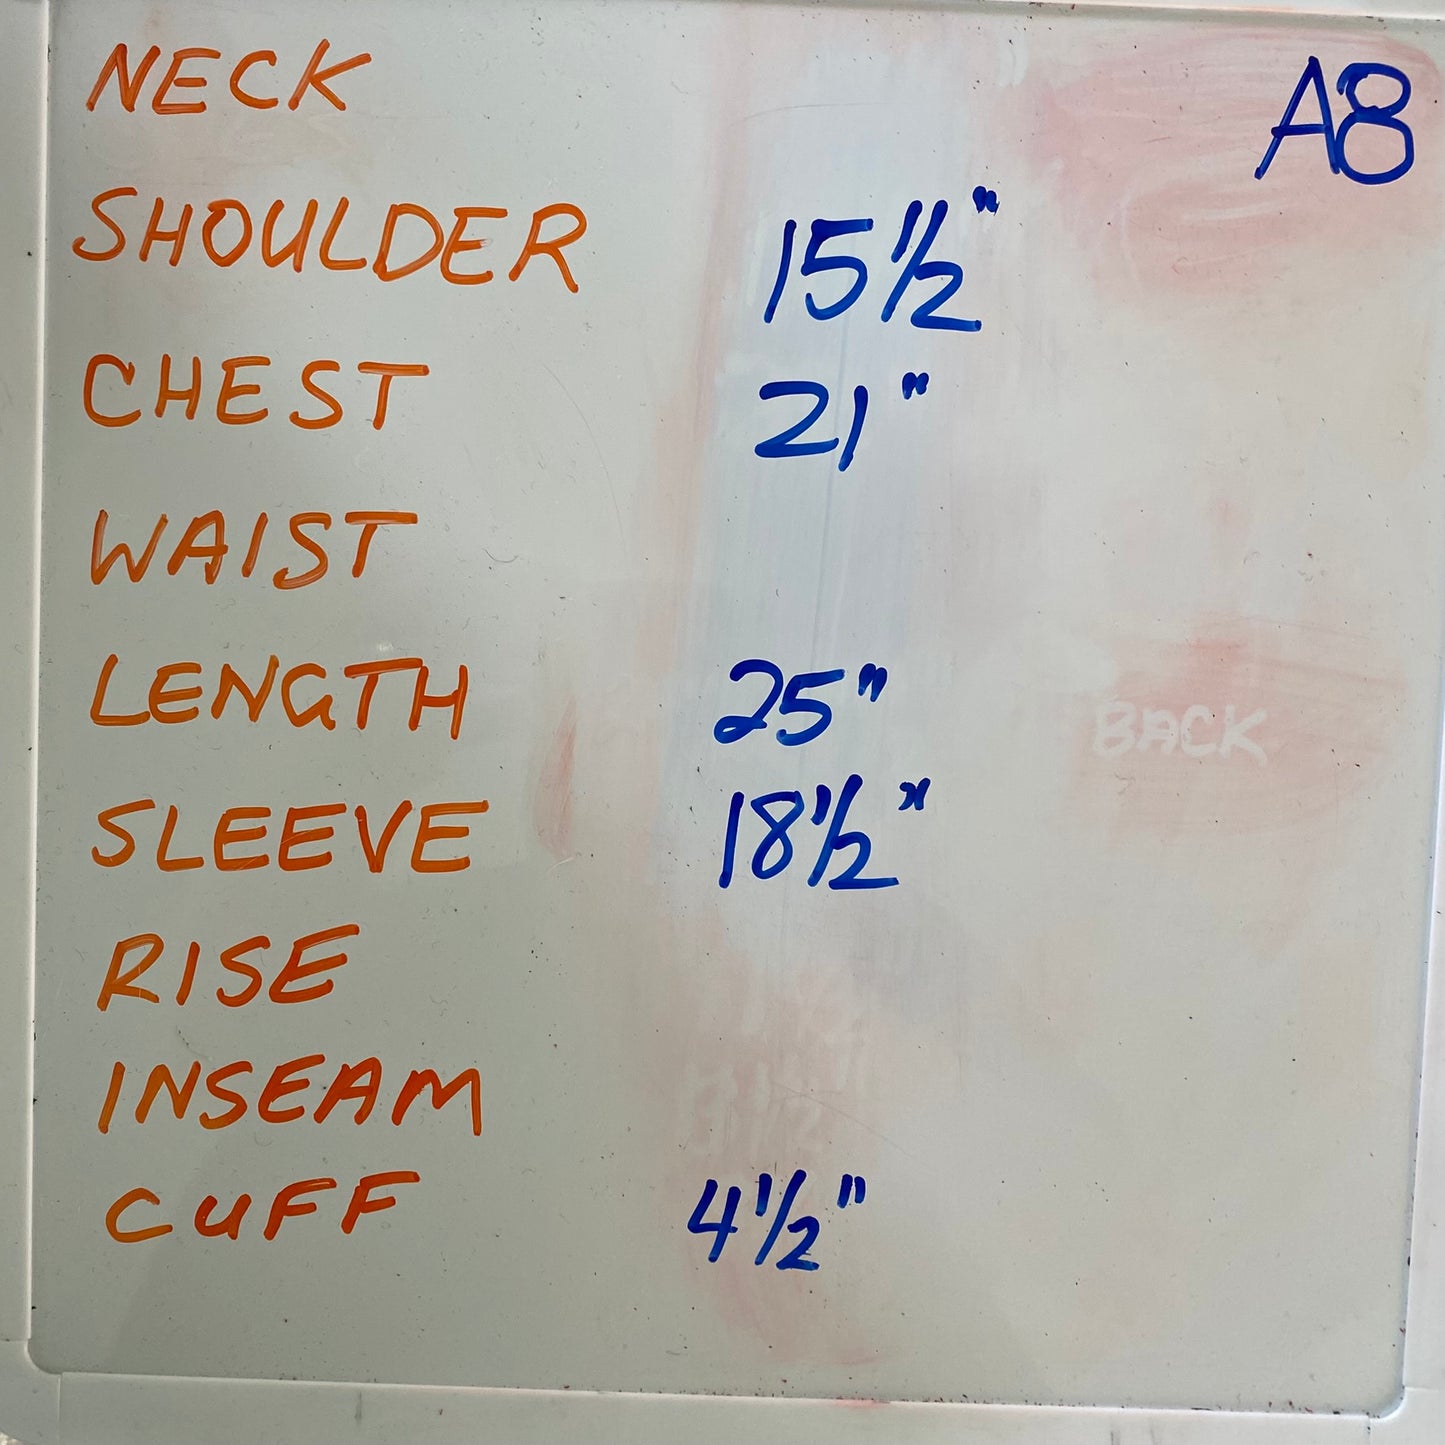 A8
NECK
SHOULDER 15 1/2"
CHEST 21"
WAIST
LENGTH 25"
BACK
SLEEVE 18 1/2"
RISE
INSEAM
CUFF 4 1/2"